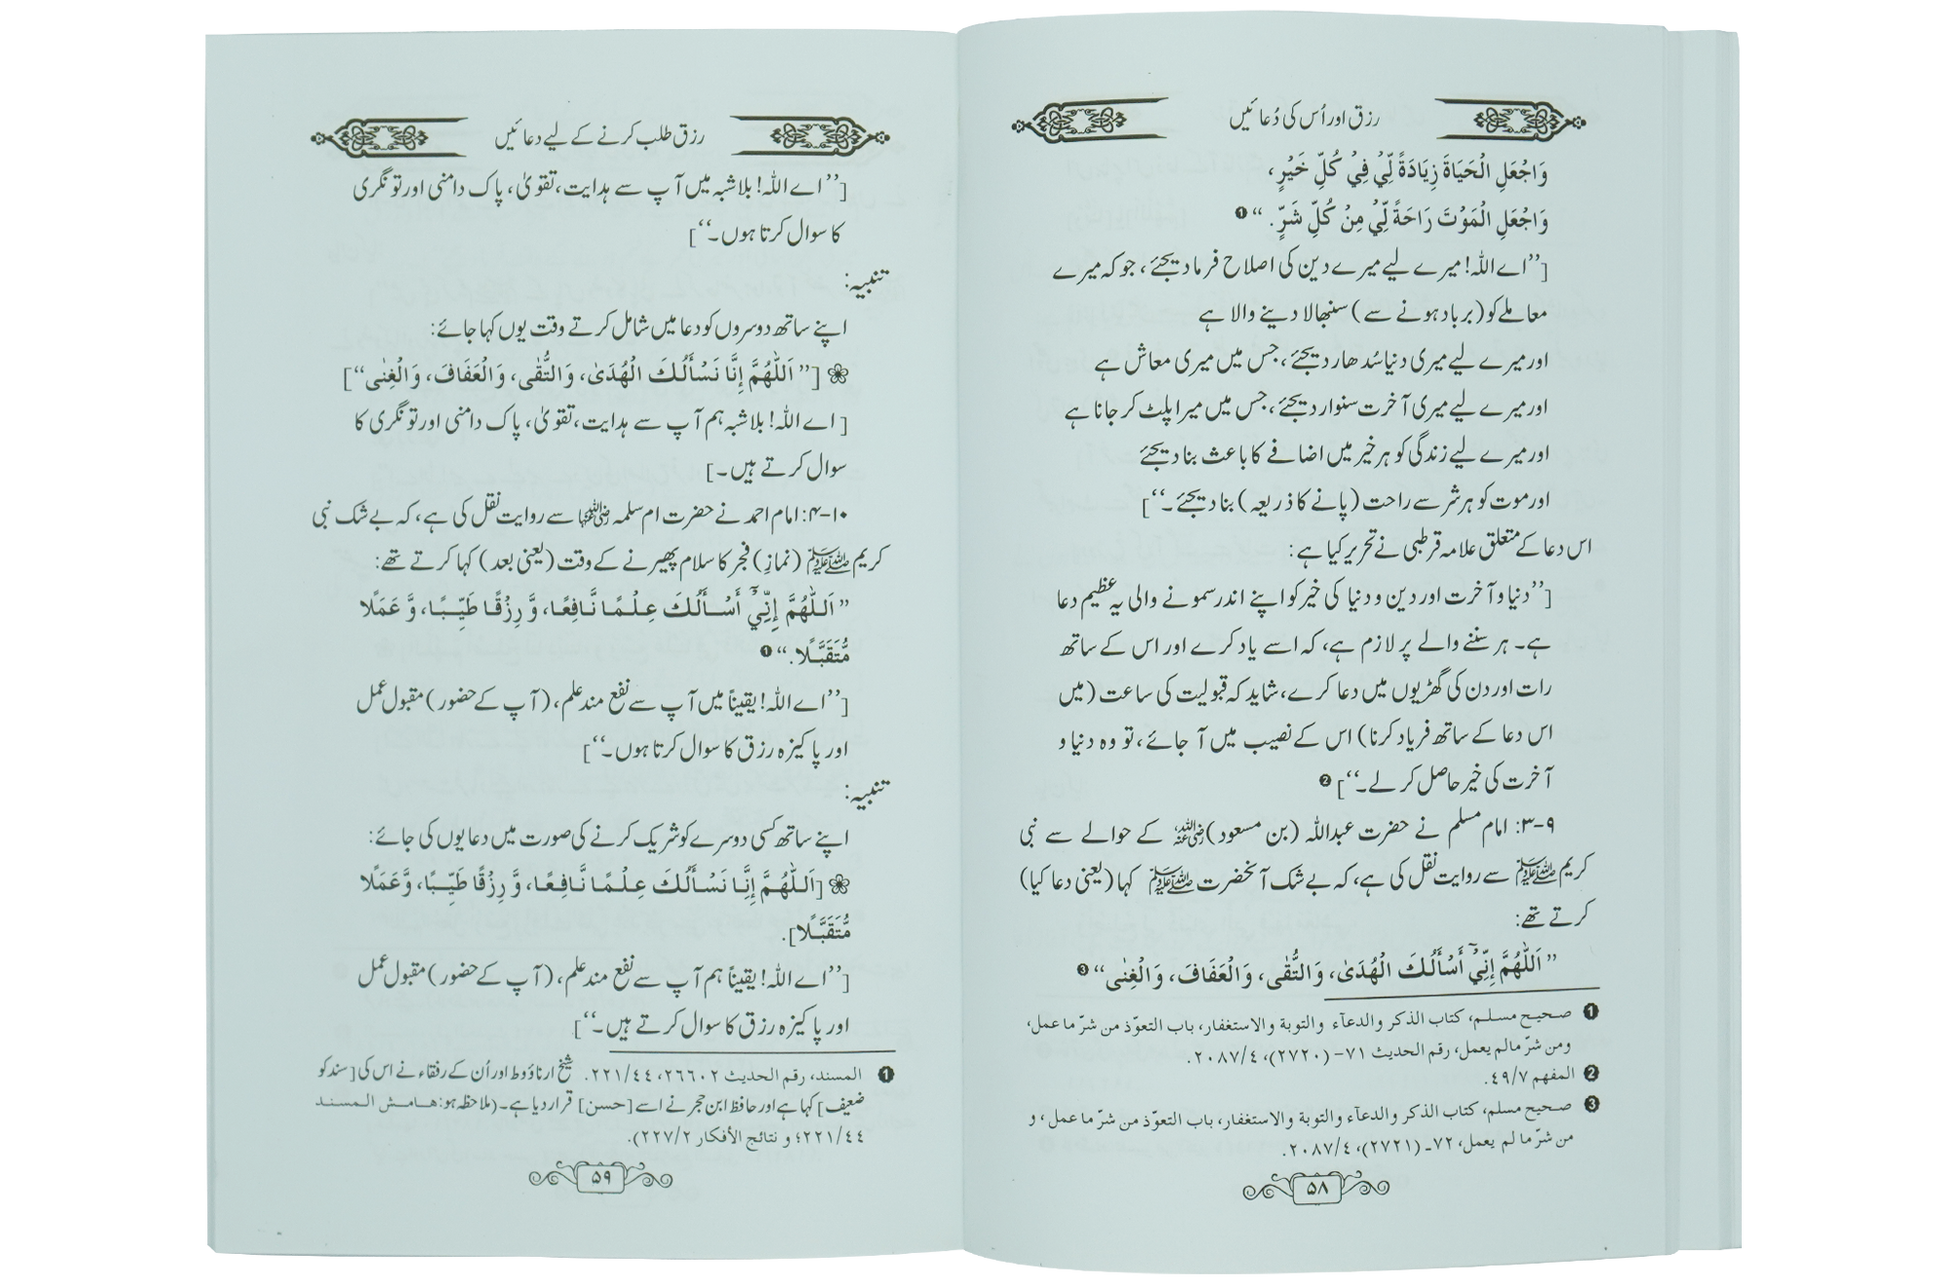 رزق اور اُس کی دُعائیں
وَاجْعَلِ الْحَيَاةَ زِيَادَةً لِّيْ فِيْ كُلِّ خَيْرٍ،
وَاجْعَلِ الْمَوْتَ رَاحَةً لِّيْ مِنْ كُلِّ شَرٍّ. “ ❶
[’’اے اللہ! میرے لیے میرے دین کی اصلاح فرما دیجئے، جو کہ میرے
معاملے کو (برباد ہونے سے) سنبھالا دینے والا ہے
اور میرے لیے میری دنیا سُدھار دیجئے، جس میں میری معاش ہے
اور میرے لیے میری آخرت سنوار دیجئے، جس میں میرا پلٹ کر جانا ہے
اور میرے لیے زندگی کو ہر خیر میں اضافے کا باعث بنا دیجئے
اور موت کو ہر شر سے راحت (پانے کا ذریعہ) بنا دیجئے۔‘‘]
اس دعا کے متعلق علامہ قرطبی نے تحریر کیا ہے:
[’’دنیا و آخرت اور دین و دنیا کی خیر کو اپنے اندر سمونے والی یہ عظیم دعا
ہے۔ ہر سننے والے پر لازم ہے، کہ اسے یاد کرے اور اس کے ساتھ
رات اور دن کی گھڑیوں میں دعا کرے، شاید کہ قبولیت کی ساعت (میں
اس دعا کے ساتھ فریاد کرنا) اس کے نصیب میں آ جائے، تو وہ دنیا و
آخرت کی خیر حاصل کر لے۔‘‘] ❷
۹-۳: امام مسلم نے حضرت عبداللہ (بن مسعود) رضی اللہ عنہ کے حوالے سے نبی
کریم ﷺ سے روایت نقل کی ہے، کہ بے شک آنحضرت ﷺ کہا (یعنی دعا کیا)
کرتے تھے:
” اَللّٰهُمَّ إِنِّيْٓ أَسْأَلُكَ الْهُدَىٰ، وَالتُّقٰى، وَالْعَفَافَ، وَالْغِنٰى“ ❸
❶ صحيح مسلم، كتاب الذكر والدعآء والتوبة والاستغفار، باب التعوّذ من شرّ ما عمل،
ومن شرّ مالم يعمل، رقم الحديث ٧١- (٢٧٢٠)، ٢٠٨٧/٤.
❷ المفهم ٤٩/٧.
❸ صحيح مسلم، كتاب الذكر والدعآء والتوبة والاستغفار، باب التعوّذ من شرّ ما عمل، و
من شرّ ما لم يعمل، ٧٢- (٢٧٢١)، ٢٠٨٧/٤.
۵۸
رزق طلب کرنے کے لیے دعائیں
[’’اے اللہ! بلاشبہ میں آپ سے ہدایت، تقویٰ، پاک دامنی اور تونگری
کا سوال کرتا ہوں۔‘‘]
تنبیہ:
اپنے ساتھ دوسروں کو دعا میں شامل کرتے وقت یوں کہا جائے:
❀ [” اَللّٰهُمَّ إِنَّا نَسْأَلُكَ الْهُدَىٰ، وَالتُّقٰى، وَالْعَفَافَ، وَالْغِنٰى“]
[اے اللہ! بلاشبہ ہم آپ سے ہدایت، تقویٰ، پاک دامنی اور تونگری کا
سوال کرتے ہیں۔]
۱۰-۴: امام احمد نے حضرت ام سلمہ رضی اللہ عنہا سے روایت نقل کی ہے، کہ بے شک نبی
کریم ﷺ (نمازِ) فجر کا سلام پھیرنے کے وقت (یعنی بعد) کہا کرتے تھے:
” اَللّٰهُمَّ إِنِّيْٓ أَسْأَلُكَ عِلْمًا نَّافِعًا، وَّ رِزْقًا طَيِّبًا، وَّ عَمَلًا
مُّتَقَبَّلًا. “ ❶
[’’اے اللہ! یقیناً میں آپ سے نفع مند علم، (آپ کے حضور) مقبول عمل
اور پاکیزہ رزق کا سوال کرتا ہوں۔‘‘]
تنبیہ:
اپنے ساتھ کسی دوسرے کو شریک کرنے کی صورت میں دعا یوں کی جائے:
❀ [اَللّٰهُمَّ إِنَّا نَسْأَلُكَ عِلْمًا نَّافِعًا، وَّ رِزْقًا طَيِّبًا، وَّعَمَلًا
مُّتَقَبَّلًا].
[’’اے اللہ! یقیناً ہم آپ سے نفع مند علم، (آپ کے حضور) مقبول عمل
اور پاکیزہ رزق کا سوال کرتے ہیں۔‘‘]
❶ المسند، رقم الحديث ٢٦٦٠٢، ٢٢١/٤٤. شیخ ارناؤوط اور اُن کے رفقاء نے اس کی [سند کو
ضعیف] کہا ہے اور حافظ ابن حجر نے اسے [حسن] قرار دیا ہے۔ (ملاحظہ ہو: هامش المسند
٢٢١/٤٤؛ و نتائج الأفكار ٢٢٧/٢).
۵۹